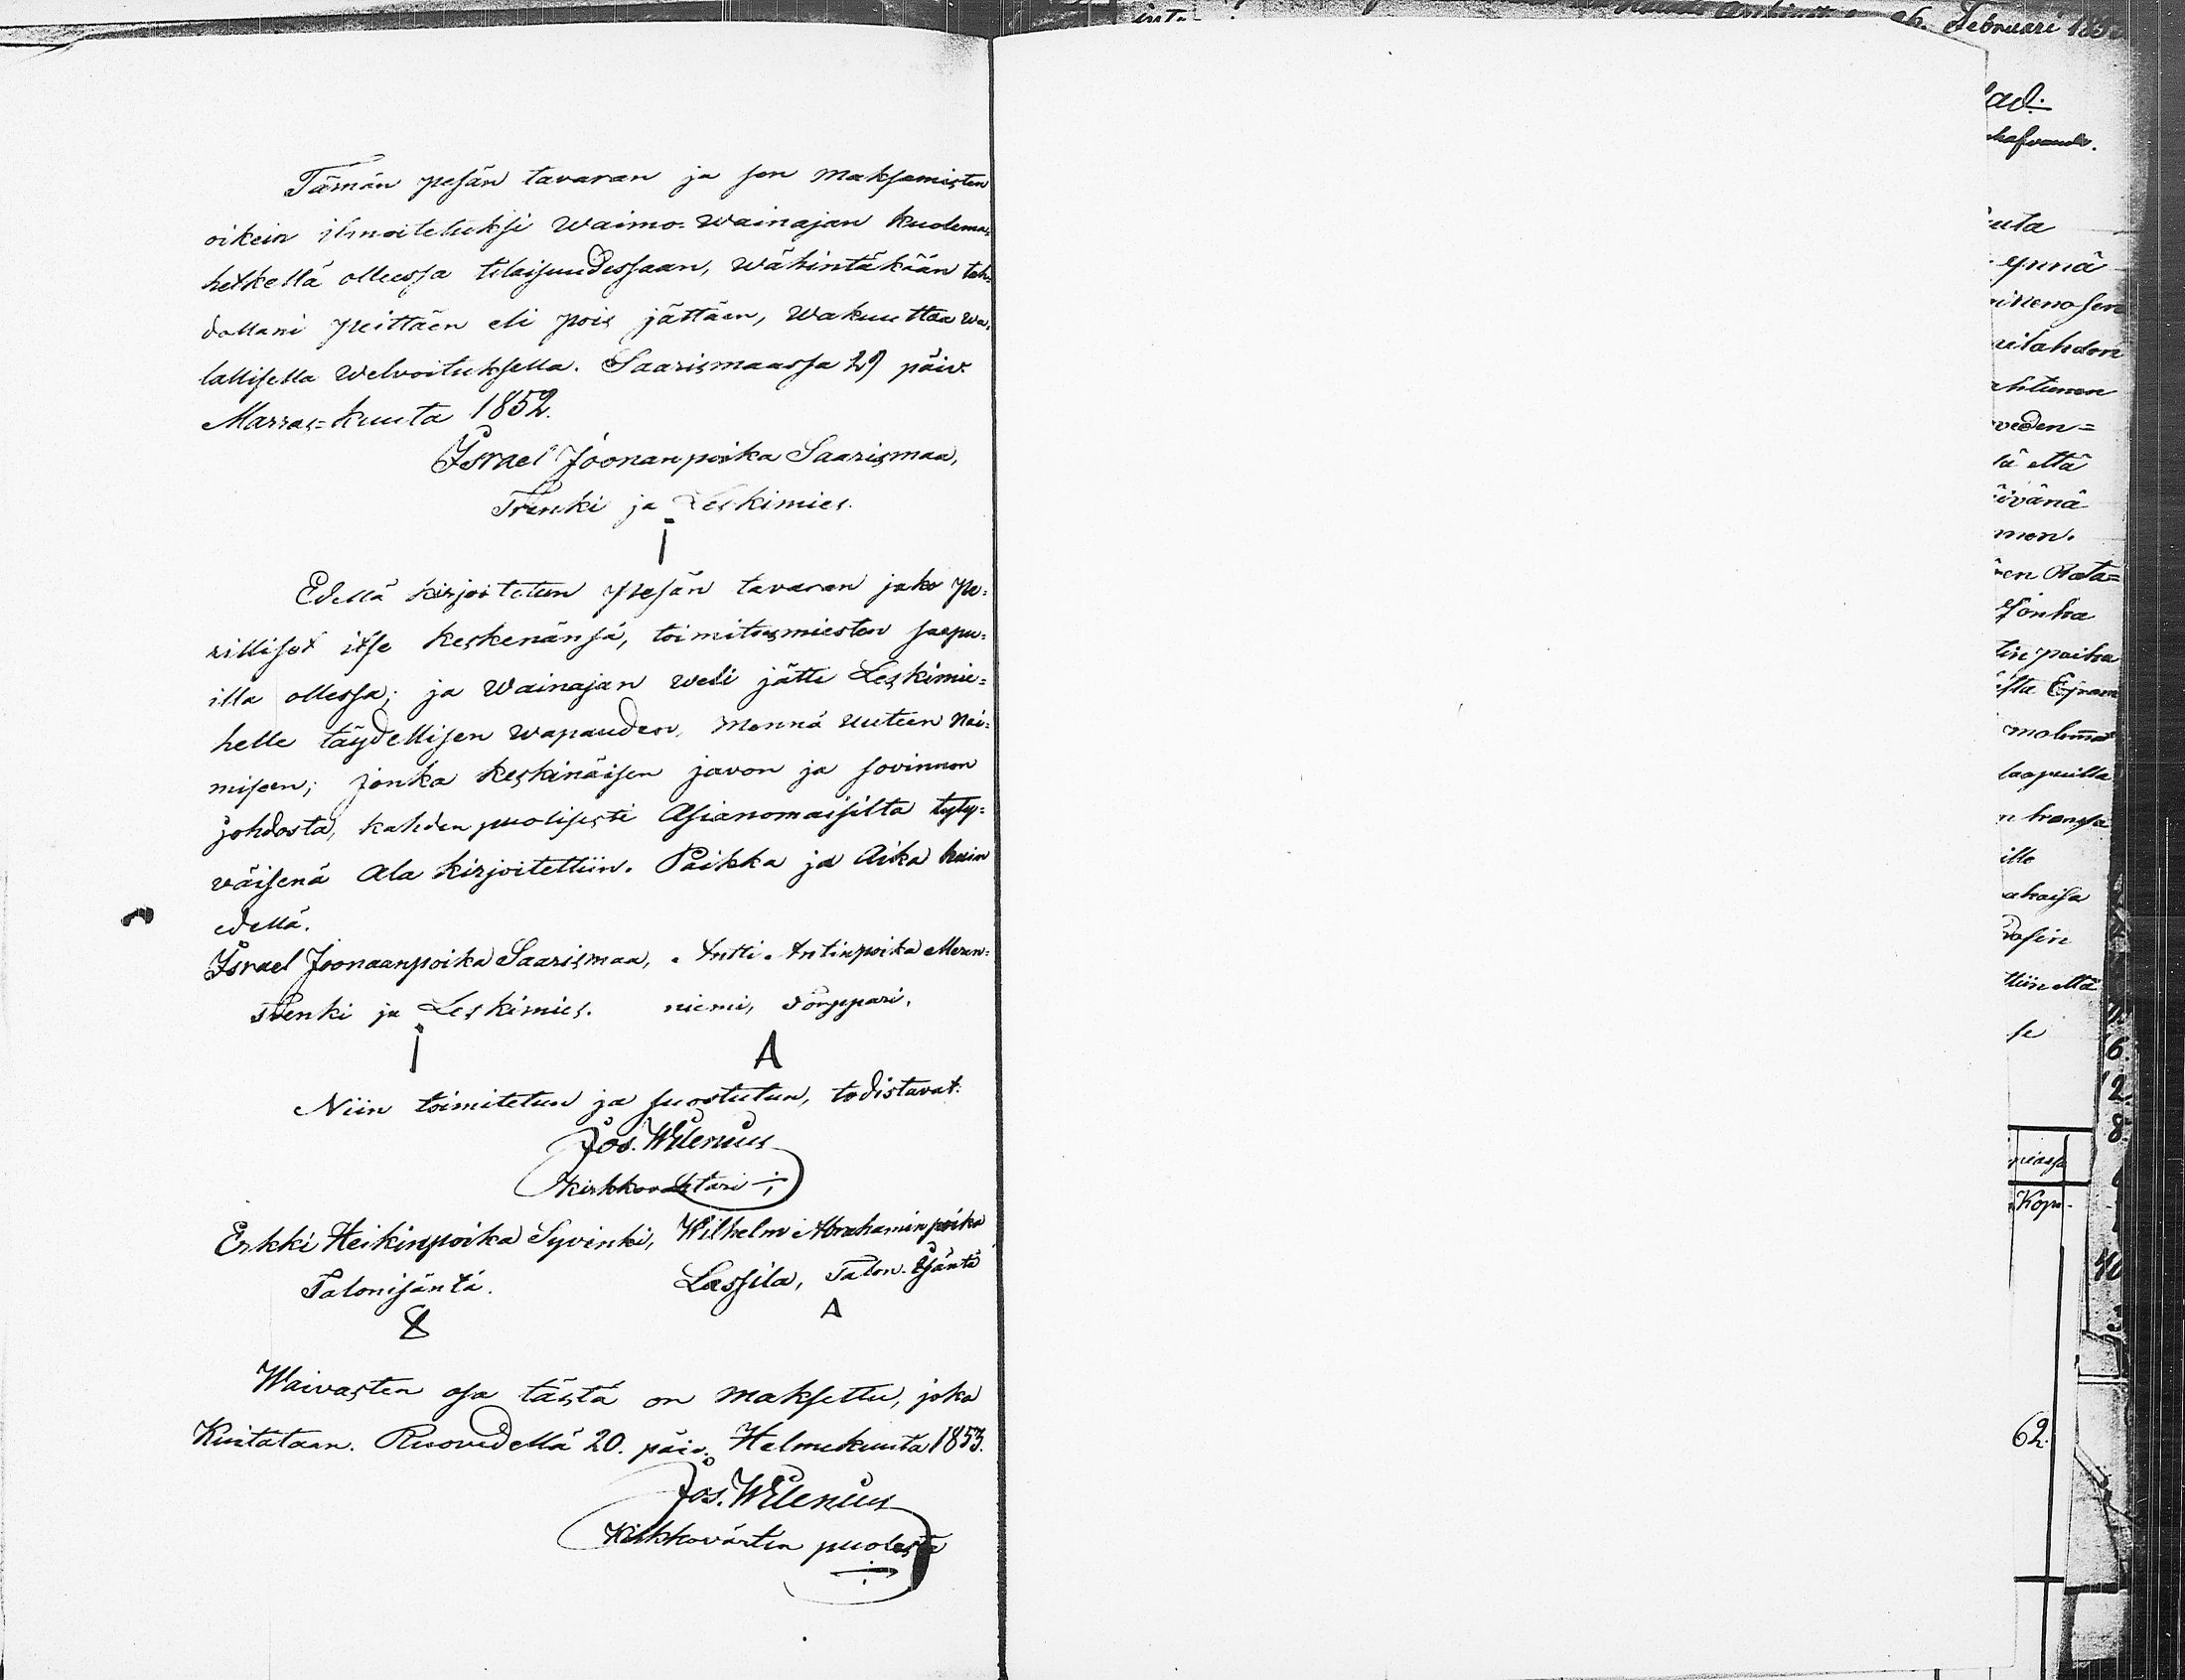 Tämän pesän tavaran ja sen maksamisten
oikein ilmoitetuksi Waimo-wainajan kuolema-
hetkellä olleessa tilaisuudessaan, wähintäkään tah-
dollani peittäen eli pois jättäen, wakuuttaa wa-
lallisella welvoituksella. Saarismaassa 29 päiv.
Marras=kuuta 1852.
Israel Joonanpoika Saarismaa,
Trenki ja Leskimies.
I
Edellä kirjoitetun pesän tavaran jako pe-
rilliset itse keskenänsä, toimitusmiesten saapu-
illa ollessa; ja Wainajan weli jätti Leskimie-
helle täydellisen wapauden, mennä uuteen nai-
miseen; jonka keskinäisen javon ja sovinnon
johdosta, kahden puolisesti Asianomaisilta tyty-
väisenä Ala kirjoitettiin. Paikka ja Aika kuin
edellä.
Israel Joonaanpoika Saarismaa, Antti Antinpoika Meren-
Trenki ja Leskimies. niemi, Torppari.
I A
Niin toimitetun ja suostutun, todistavat:
Jos. Wilenius
Kirkkovahtari
Erkki Heikinpoika Syvinki, Wilhelm Abrahaminpoika
Talonisäntä. Lassila, Talon-Isäntä
8 A
Waivasten osa tästä on maksettu, joka
Kuitataan. Ruovedellä 20. päiv. Helmekuuta 1853.
Jos. Wilenius
Kirkkovärtin puolesta